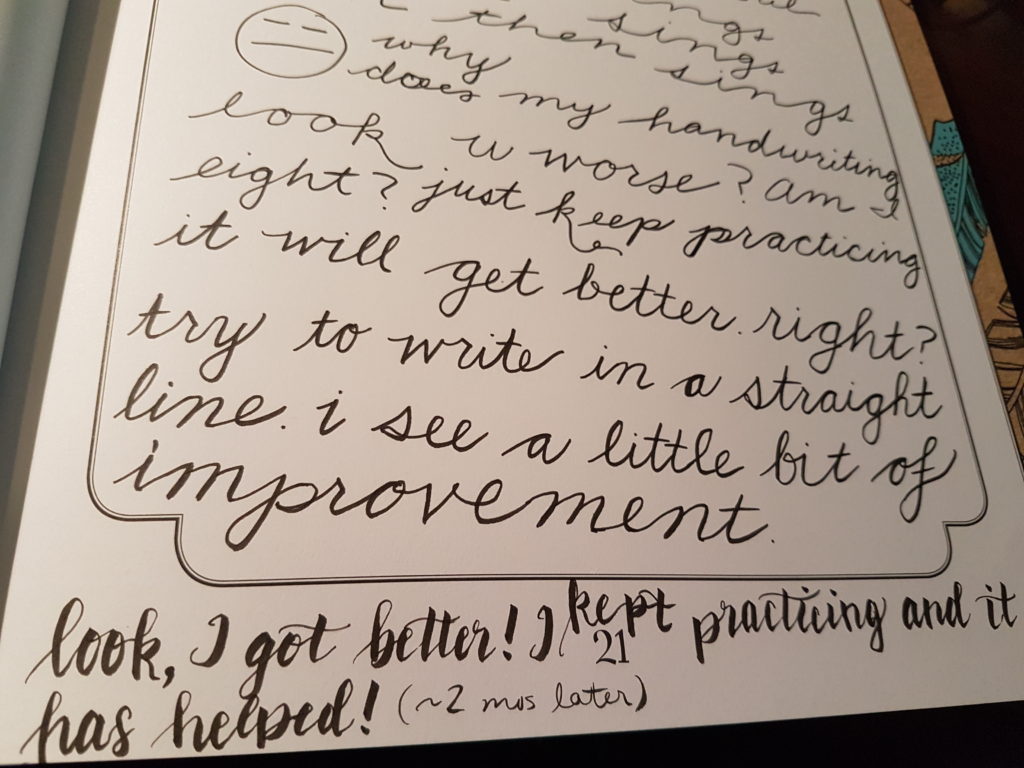 sings
then sings
why
does my handwriting
look u worse? am I
eight? just keep practicing
it will get better. right?
try to write in a straight
line. i see a little bit of
improvement.
21
look, I got better! I kept practicing and it
has helped! (~2 mos later)